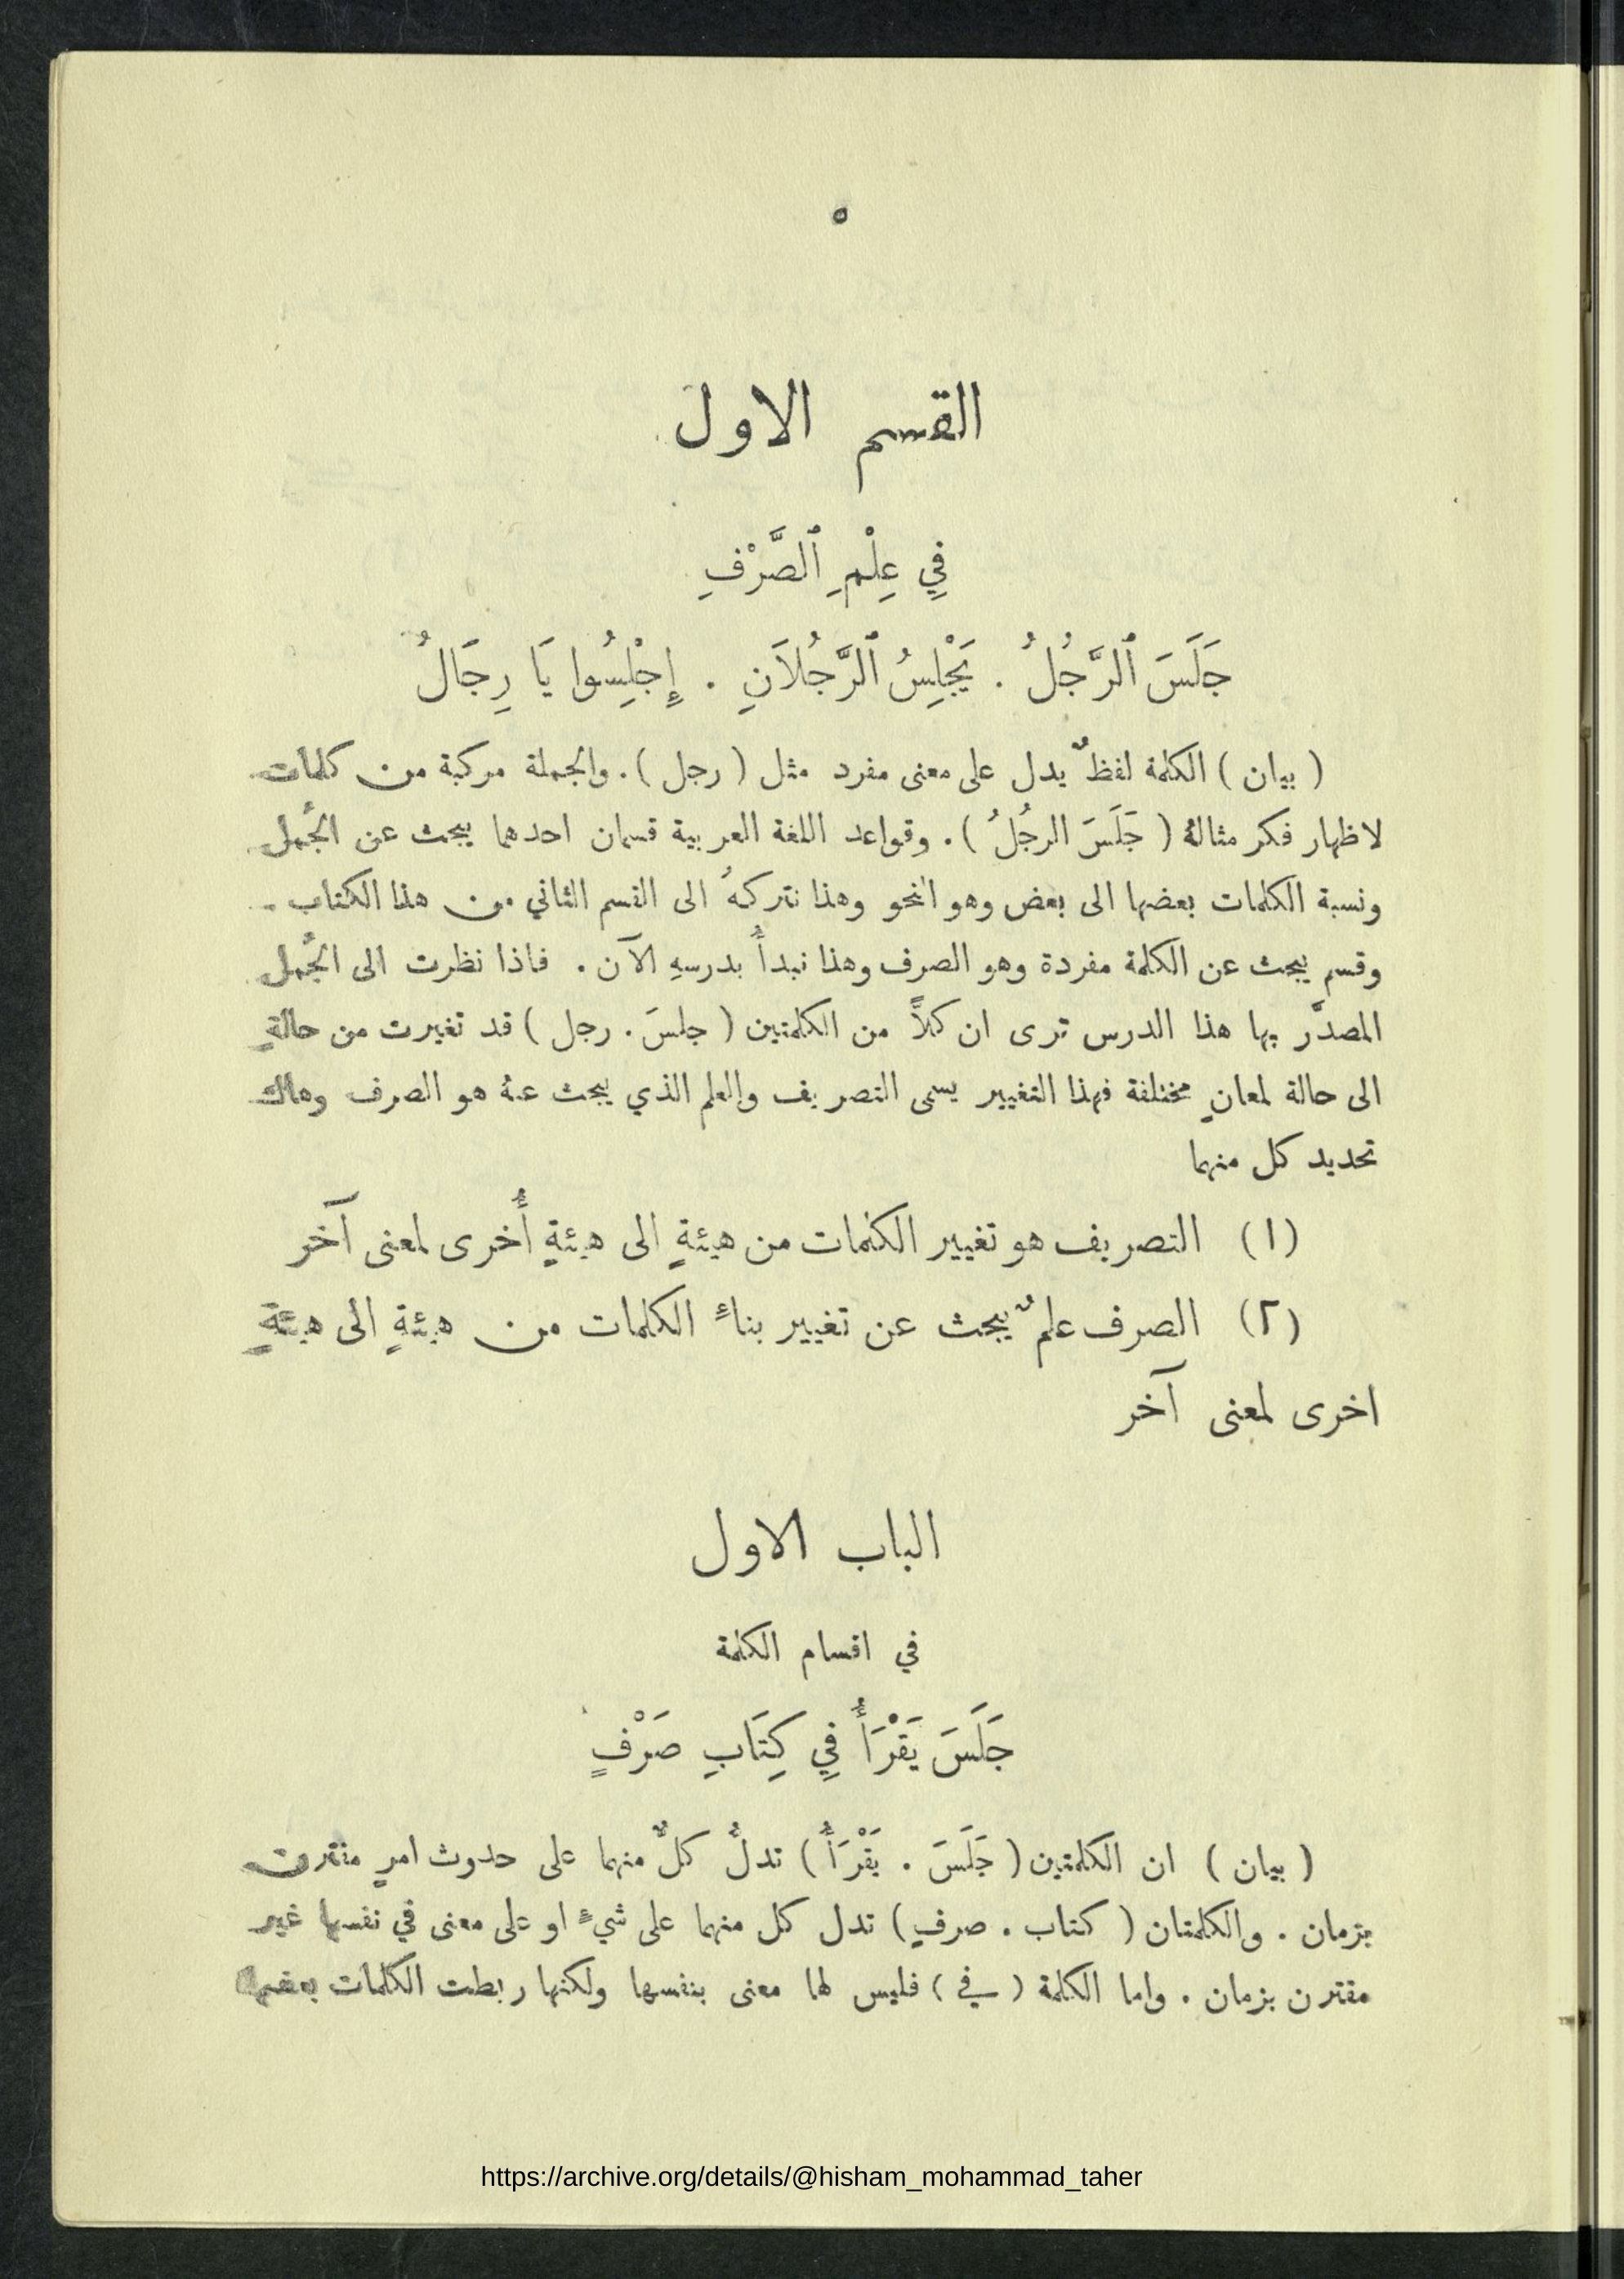 ٥
القسم الاول
فِي عِلْمِ ٱلصَّرْفِ
جَلَسَ ٱلرَّجُلُ . يَجْلِسُ ٱلرَّجُلاَنِ . إِجْلِسُوا يَا رِجَالُ
( بيان ) الكلمة لفظٌ يدل على معنى مفرد مثل ( رجل ) . والجملة مركبة من كلمات
لاظهار فكر مثالهُ ( جَلَسَ الرجُلُ ) . وقواعد اللغة العربية قسمان احدهما يبحث عن الجُمل
ونسبة الكلمات بعضها الى بعض وهو النحو وهذا نتركهُ الى القسم الثاني من هذا الكتاب .
وقسم يبحث عن الكلمة مفردة وهو الصرف وهذا نبدأُ بدرسهِ الآن . فاذا نظرت الى الجُمل
المصدَّر بها هذا الدرس ترى ان كلاًّ من الكلمتين ( جلسَ . رجل ) قد تغيرت من حالةٍ
الى حالة لمعانٍ مختلفة فهذا التغيير يسمى التصريف والعلم الذي يبحث عنهُ هو الصرف وهاك
تحديد كل منهما
(١) التصريف هو تغيير الكلمات من هيئةٍ الى هيئةٍ أُخرى لمعنى آخر
(٢) الصرف علمٌ يبحث عن تغيير بناءِ الكلمات من هيئةٍ الى هيئةٍ
اخرى لمعنى آخر
الباب الاول
في اقسام الكلمة
جَلَسَ يَقْرَأُ فِي كِتَابِ صَرْفٍ
( بيان ) ان الكلمتين ( جَلَسَ . يَقْرَأُ ) تدلُّ كلٌّ منهما على حدوث امرٍ مقترن
بزمان . والكلمتان ( كتاب . صرفٍ ) تدل كل منهما على شيءٍ او على معنى في نفسها غير
مقترن بزمان . واما الكلمة ( في ) فليس لها معنى بنفسها ولكنها ربطت الكلمات بعضها
https://archive.org/details/@hisham_mohammad_taher